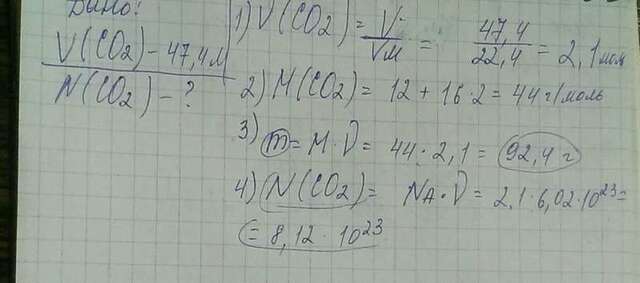 Дано:
V(CO₂) - 47,4 л
N(CO₂) - ?
1) ν(CO₂) = V/Vм = 47,4/22,4 = 2,1 моль
2) M(CO₂) = 12 + 16·2 = 44 г/моль
3) m = M·ν = 44·2,1 = 92,4 г
4) N(CO₂) = NA·ν = 2,1·6,02·10²³ =
= 8,12·10²³